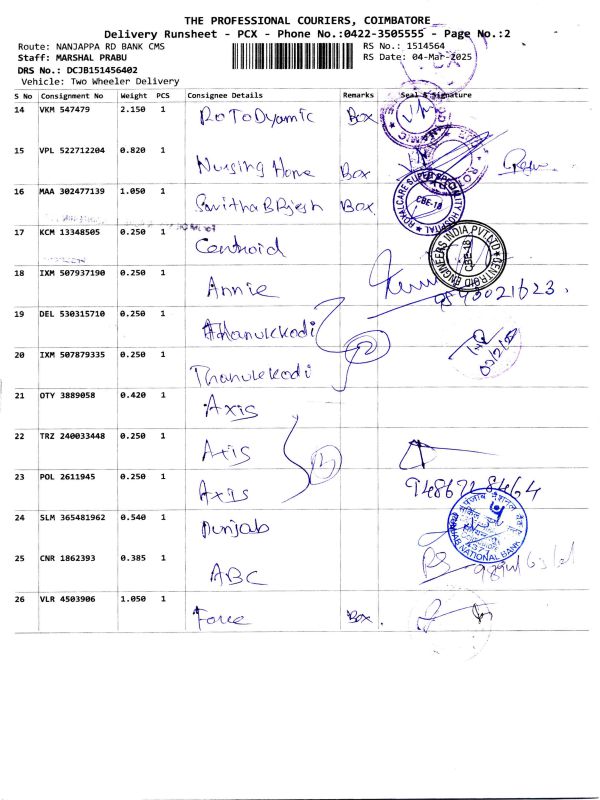 THE PROFESSIONAL COURIERS, COIMBATORE
Delivery Runsheet - PCX - Phone No.:0422-3505555 - Page No.:2
Route: NANJAPPA RD BANK CMS
RS No.: 1514564
Staff: MARSHAL PRABU
RS Date: 04-Mar-2025
DRS No.: DCJB151456402
Vehicle: Two Wheeler Delivery
S No Consignment No Weight PCS Consignee Details Remarks Seal & Signature
14 VKM 547479 2.150 1 RoToDyamic Box
15 VPL 522712204 0.820 1 Nursing Home Box
16 MAA 302477139 1.050 1 Savitha B Rjesh Box
ROYALCARE SUPER SPECIALITY HOSPITAL CBE-18
17 KCM 13348505 0.250 1 Centroid
CENTROID ENGINEERS INDIA PVT LTD CBE-18
18 IXM 507937190 0.250 1 Annie
19 DEL 530315710 0.250 1 Thanukkodi
20 IXM 507879335 0.250 1 Thanukkodi
21 OTY 3889058 0.420 1 Axis
22 TRZ 240033448 0.250 1 Axis
23 POL 2611945 0.250 1 Axis
9486728464
24 SLM 365481962 0.540 1 Punjab
PUNJAB NATIONAL BANK
25 CNR 1862393 0.385 1 ABC
26 VLR 4503906 1.050 1 Force Box